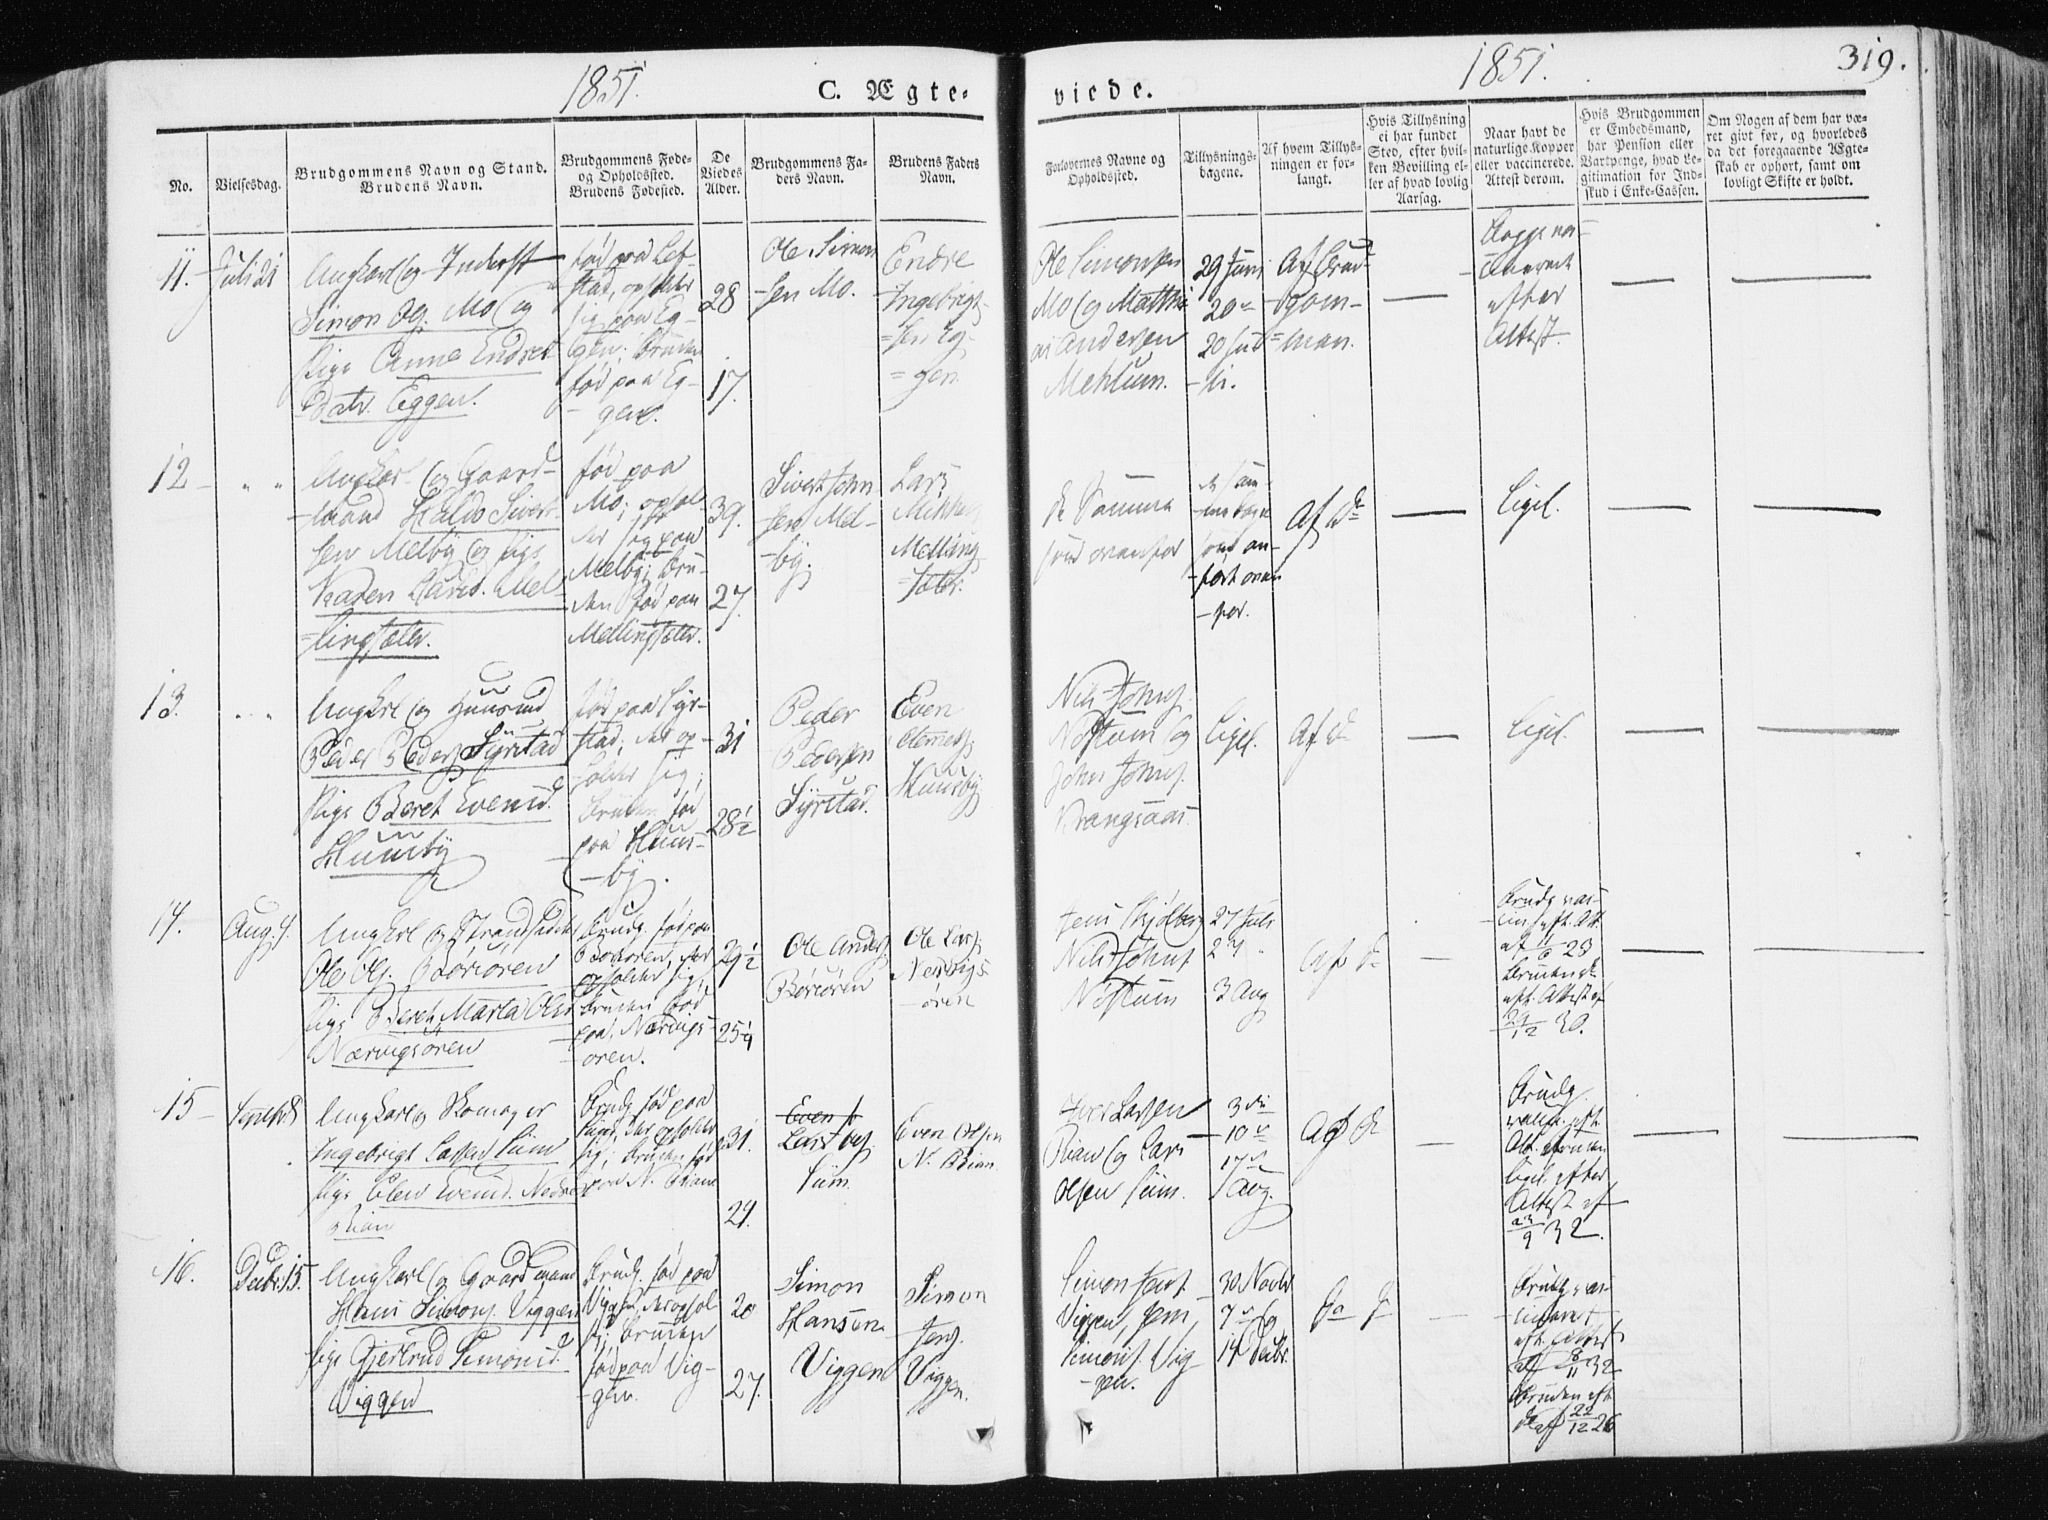 1851.
C. Ægte-
viede.
1851.
319.
No.
Vielsesdag.
Brudgommens Navn og Stand.
Brudens Navn.
Brudgommens Føde-
og Opholdssted.
Brudens Fødested.
De
Viedes
Alder.
Brudgommens Fa-
ders Navn.
Brudens Faders
Navn.
Forlovernes Navne og
Opholdssted.
Tillysnings-
dagene.
Af hvem Tillys-
ningen er for-
langt.
Hvis Tillysning
ei har fundet
Sted, efter hvil-
ken Bevilling el-
ler af hvad lovlig
Aarsag.
Naar havt de
naturlige Kopper
eller vaccinerede.
Attest derom.
Hvis Brudgommen
er Embedsmand,
har Pension eller
Vartpenge, hvad Le-
gitimation for Ind-
skud i Enke-Cassen.
Om Nogen af dem har væ-
ret givt før, og hvorledes
da det foregaaende Ægte-
skab er ophørt, samt om
lovligt Skifte er holdt.
11.
Juli 21
Ungkarl og Inderst
Simon Ols. Mo og
Pige Anne Endres
Datr. Eggen.
fød paa
stad, opholder
sig paa Eg-
gen; Bruden
fød paa Eg-
gen.
28
17.
Ole Simon
sen Mo.
Endre
Ingebrigt-
sen Eg-
gen.
Ole Simonsen
Mo og Mathi
as Andersen
Mehlum.
29 Juni
20
20 Ju-
li.
Af Brud-
gom-
man.
efter
Attest.
12
" "
Ungkarl og Gaard-
mand Haldo Sivert-
sen Melby og Pige
Karen Larsd. Mel-
lingsæter.
fød paa
Mo; ophol-
der sig paa
Melby; Bru-
den fød paa
Mellingsæter.
39.
27.
Sivert John
sen Mel-
by.
Lars
Mikkels
Melling
sæter.
de Samme
som ovenfor
de sam-
me Dage
som an-
ført oven
for.
Af Do
Ligel.
13.
" "
Ungkrl og Huusmd
Peder Peders Syrstad
Pige Beret Evensd.
Huusby
fød paa Syr-
stad; der op-
holder sig;
Bruden fød
paa Huus-
by.
31
28½
Peder
Pedersen
Syrstad.
Even
Huusby
Nils Johns.
Nostum og
John Johns.
Vrangsaas.
Ligel.
Af Do
Ligel.
14.
Aug. 4.
Ungkrl og Strandsidder
Ole Ols. Børiøren
Pige Beret Marta Olsd
Næringsøren
Brudg. fød paa
Børiøren, der
opholder sig,
Bruden fød
paa Nærvigs-
øren.
29½
25¼
Ole Anders
Børiøren
Ole Lars
Nervigs-
øren
Nils Johns
Nostum
27 Juli
3 Aug
Af Do
Brudg. vac-
cin. eft. Att.
af 11/6 23
Bruden do.
eft. Attest af
29/12 30.
15
Ungkarl og Skomager
Ingebrigt Larsen Sum
Pige Elen Evensd. Nedre
Rian
Brudg. fød paa
Sum, der opholder
sig; Bruden fød
paa N. Riane
31.
29.
Even
Lars Ols.
Sum.
Even Olsen
N. Rian.
Iver Larsen
Rian og Lars
Olsen Sum.
3 die
10 de
17 de
Aug.
Af Do
Brudg.
vaccn. eft.
Att. Bruden
ligel. efter
Attest af
23/9 32.
16.
Decbr. 15.
Ungkarl og Gaardmand
Hans Simons. Viggen
Pige Gjertrud Simonsd.
Viggen
Brudg. fød paa
Viggen, der ophol
sig; Bruden
fød paa Vig-
gen.
20
27.
Simon
Hansen
Viggen
Simon
Jens.
Viggen.
Simon Jens
Viggen, Jens
Simons. Vig-
gen.
30 Novbr
7 de og
14 Decbr.
Do
Brudg. vac-
cineret
eft. Attest
af 8/11 32
Bruden eft
do af 22/12 26